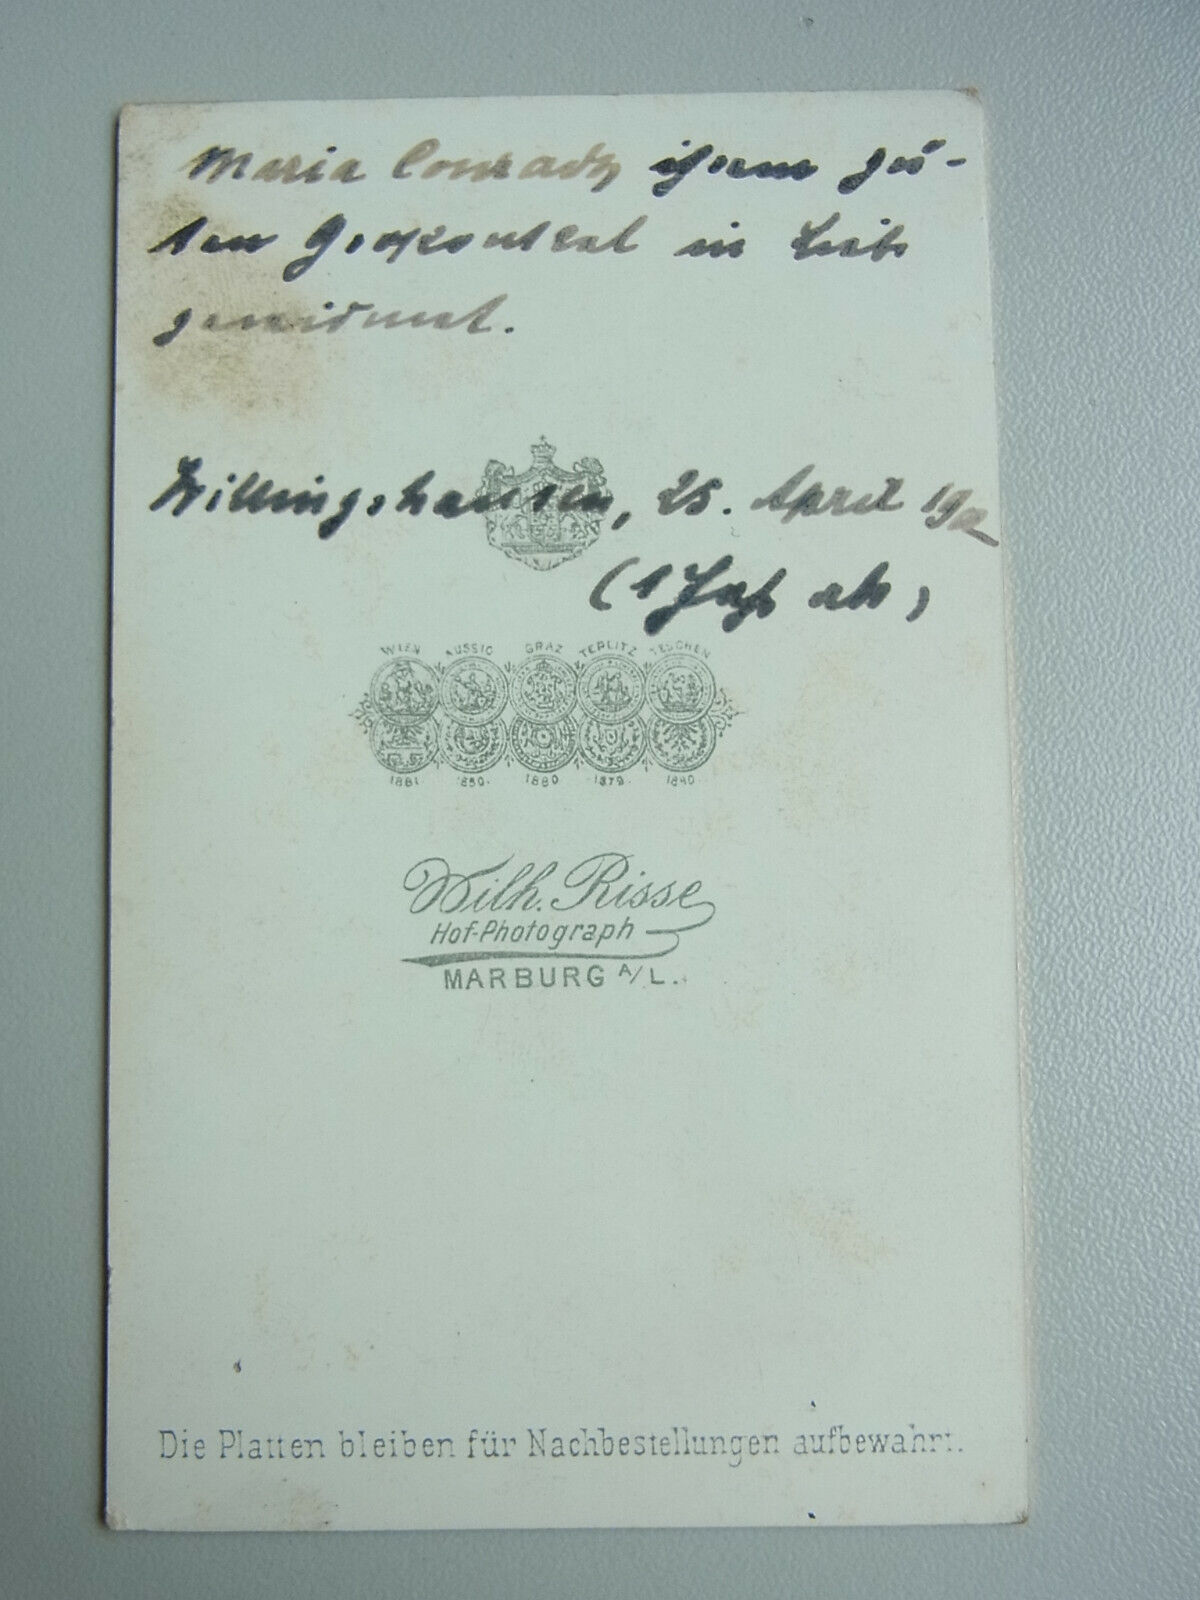 Maria Conrady ihrem gu-
ten Großonkel in Liebe
gewidmet.
Willingshausen, 25. April
(1 Jahr alt)
WIEN AUSSIG GRAZ TEPLITZ TESCHEN
1881 1850. 1880 1879. 1840
Wilh. Risse
Hof-Photograph
MARBURG A/L.
Die Platten bleiben für Nachbestellungen aufbewahrt.